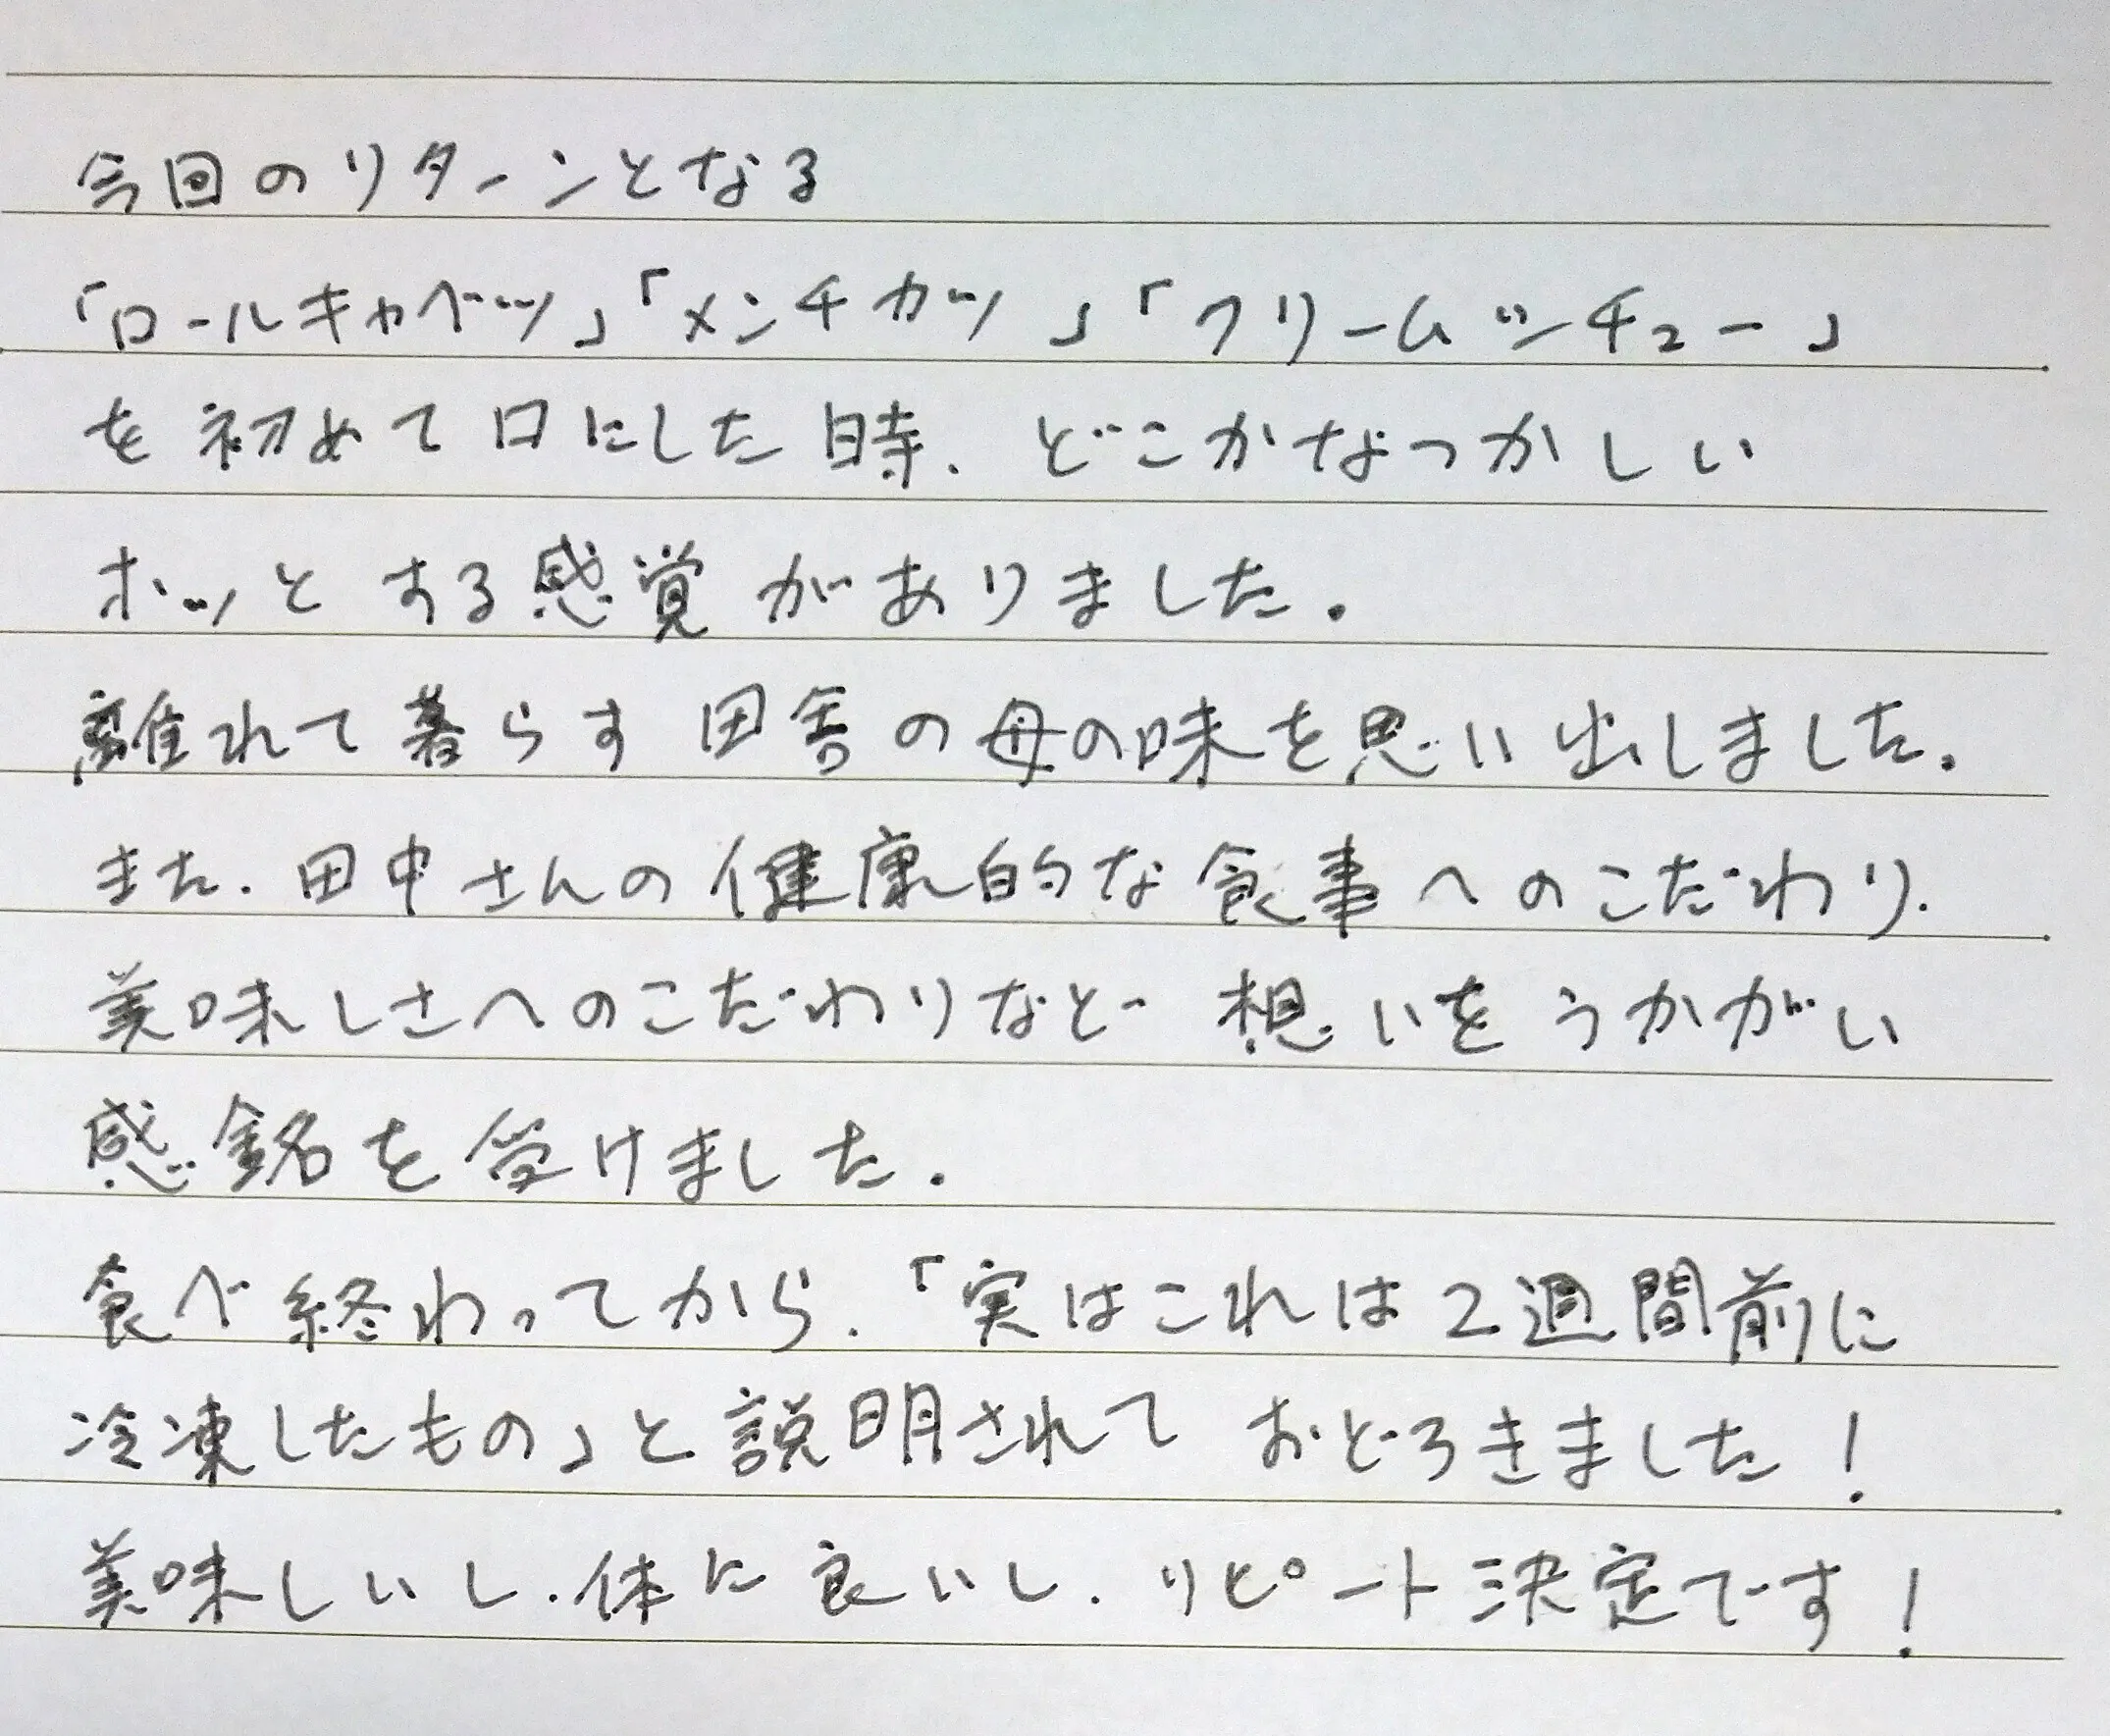 今回のリターンとなる
「ロールキャベツ」「メンチカツ」「クリームシチュー」
を初めて口にした時、どこかなつかしい
ホッとする感覚がありました。
離れて暮らす田舎の母の味を思い出しました。
また、田中さんの健康的な食事へのこだわり、
美味しさへのこだわりなど想いをうかがい
感銘を受けました。
食べ終わってから、「実はこれは2週間前に
冷凍したもの」と説明されておどろきました！
美味しいし、体に良いし、リピート決定です！